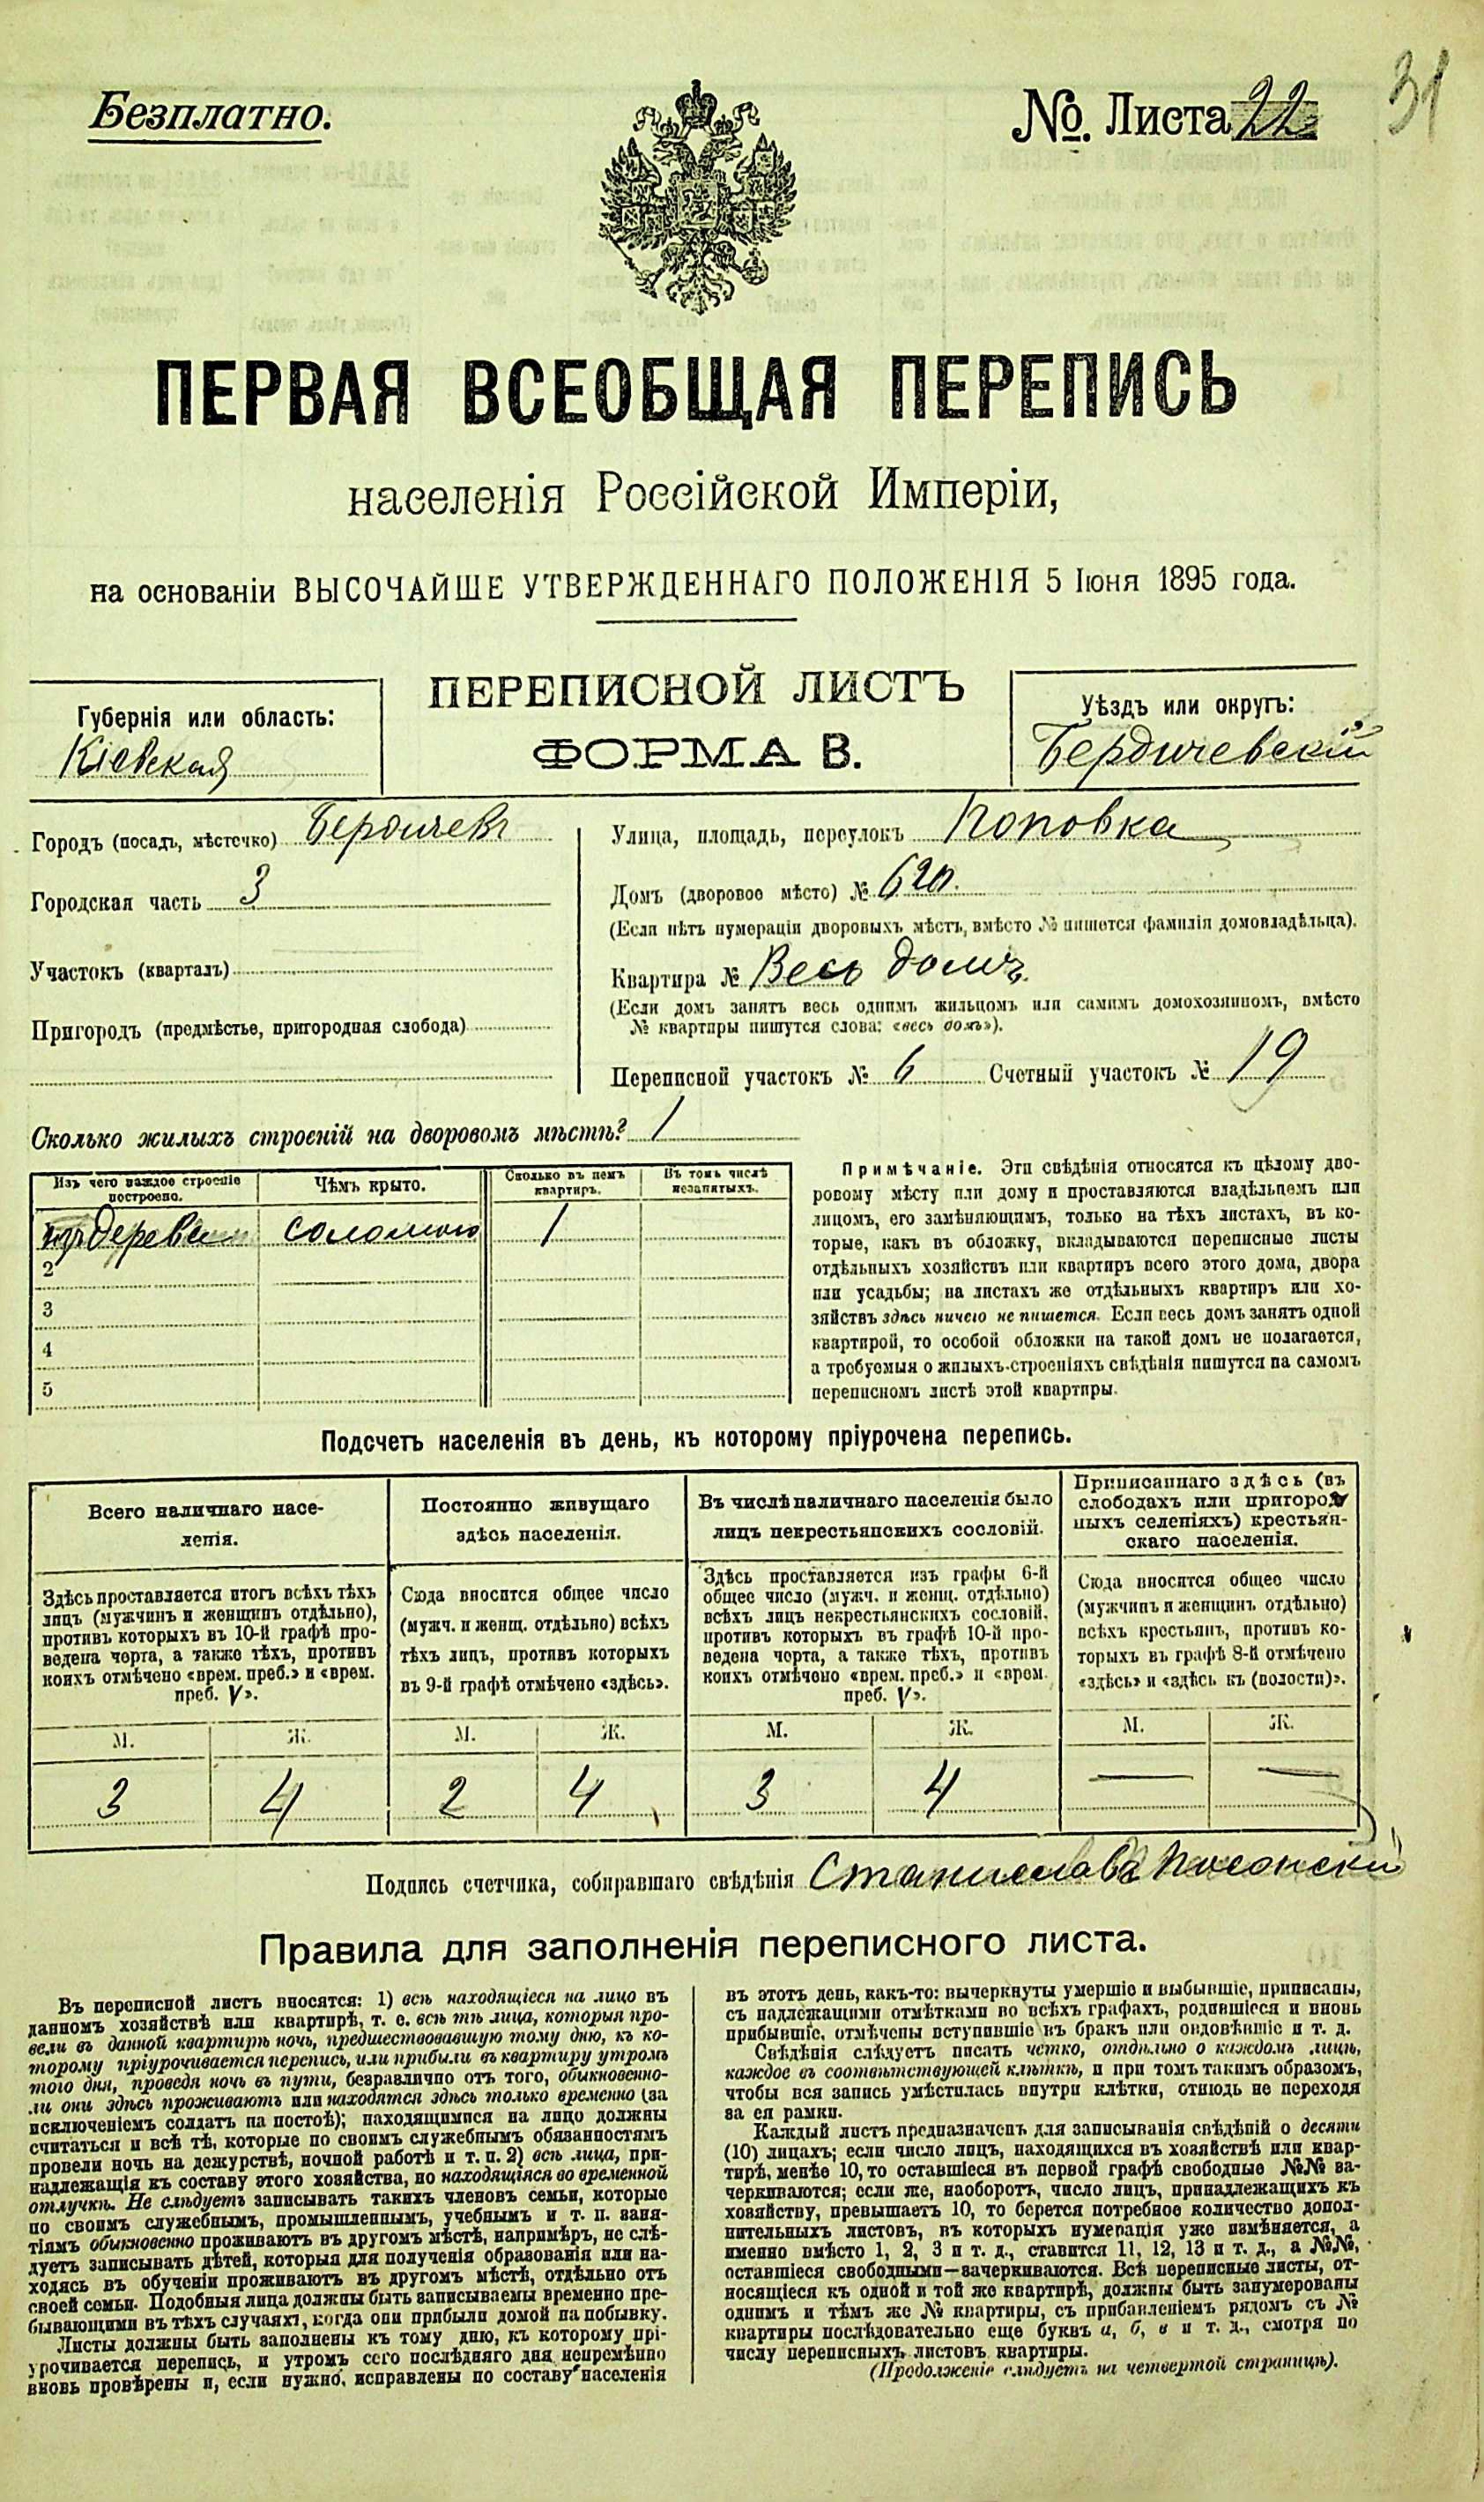 Безплатно.
№ Листа 22
31
ПЕРВАЯ ВСЕОБЩАЯ ПЕРЕПИСЬ
населенія Россійской Имперіи,
на основаніи ВЫСОЧАЙШЕ УТВЕРЖДЕННАГО ПОЛОЖЕНІЯ 5 Іюня 1895 года.
Губернія или область:
Кіевская
ПЕРЕПИСНОЙ ЛИСТЪ
ФОРМА В.
Уѣздъ или округъ:
Бердичевскій
Городъ (посадъ, мѣстечко) Бердичевъ
Городская часть 3
Участокъ (кварталъ)
Пригородъ (предмѣстье, пригородная слобода)
Улица, площадь, переулокъ Поповка
Домъ (дворовое мѣсто) № 620.
(Если нѣтъ нумераціи дворовыхъ мѣстъ, вмѣсто № пишется фамилія домовладѣльца).
Квартира № Весь домъ
(Если домъ занятъ весь однимъ жильцомъ или самимъ домохозяиномъ, вмѣсто
№ квартиры пишутся слова: «весь домъ»).
Переписной участокъ № 6 Счетный участокъ № 19
Сколько жилыхъ строеній на дворовомъ мѣстѣ? 1
Изъ чего каждое строеніе
построено.
Чѣмъ крыто.
Сколько въ немъ
квартиръ.
Въ томъ числѣ
незанятыхъ.
изъ дерева соломою 1
2
3
4
5
Примѣчаніе. Эти свѣдѣнія относятся къ цѣлому дво-
ровому мѣсту или дому и проставляются владѣльцемъ или
лицомъ, его замѣняющимъ, только на тѣхъ листахъ, въ ко-
торые, какъ въ обложку, вкладываются переписные листы
отдѣльныхъ хозяйствъ или квартиръ всего этого дома, двора
или усадьбы; на листахъ же отдѣльныхъ квартиръ или хо-
зяйствъ здѣсь ничего не пишется. Если весь домъ занятъ одной
квартирой, то особой обложки на такой домъ не полагается,
а требуемыя о жилыхъ строеніяхъ свѣдѣнія пишутся на самомъ
переписномъ листѣ этой квартиры.
Подсчетъ населенія въ день, къ которому пріурочена перепись.
Всего наличнаго насе-
ленія.
Здѣсь проставляется итогъ всѣхъ тѣхъ
лицъ (мужчинъ и женщинъ отдѣльно),
противъ которыхъ въ 10-й графѣ про-
ведена черта, а также тѣхъ, противъ
коихъ отмѣчено «врем. преб.» и «врем.
преб. V».
М. Ж.
3 4
Постоянно живущаго
здѣсь населенія.
Сюда вносится общее число
(мужч. и женщ. отдѣльно) всѣхъ
тѣхъ лицъ, противъ которыхъ
въ 9-й графѣ отмѣчено «здѣсь».
М. Ж.
2 4
Въ числѣ наличнаго населенія было
лицъ некрестьянскихъ сословій.
Здѣсь проставляется изъ графы 6-й
общее число (мужч. и женщ. отдѣльно)
всѣхъ лицъ некрестьянскихъ сословій,
противъ которыхъ въ графѣ 10-й про-
ведена черта, а также тѣхъ, противъ
коихъ отмѣчено «врем. преб.» и «врем.
преб. V».
М. Ж.
3 4
Приписаннаго здѣсь (въ
слободахъ или пригород-
ныхъ селеніяхъ) крестьян-
скаго населенія.
Сюда вносится общее число
(мужчинъ и женщинъ отдѣльно)
всѣхъ крестьянъ, противъ ко-
торыхъ въ графѣ 8-й отмѣчено
«здѣсь» и «здѣсь къ (волости)».
М. Ж.
— —
Подпись счетчика, собиравшаго свѣдѣнія Станислав
Правила для заполненія переписного листа.
Въ переписной листъ вносятся: 1) всѣ находящіеся на лицо въ
данномъ хозяйствѣ или квартирѣ, т. е. всѣ тѣ лица, которыя про-
вели въ данной квартирѣ ночь, предшествовавшую тому дню, къ ко-
торому пріурочивается перепись, или прибыли въ квартиру утромъ
того дня, проведя ночь въ пути, безразлично отъ того, обыкновенно-
ли они здѣсь проживаютъ или находятся здѣсь только временно (за
исключеніемъ солдатъ на постоѣ); находящимися на лицо должны
считаться и всѣ тѣ, которые по своимъ служебнымъ обязанностямъ
провели ночь на дежурствѣ, ночной работѣ и т. п. 2) всѣ лица, при-
надлежащія къ составу этого хозяйства, но находящіяся во временной
отлучкѣ. Не слѣдуетъ записывать такихъ членовъ семьи, которые
по своимъ служебнымъ, промышленнымъ, учебнымъ и т. п. заня-
тіямъ обыкновенно проживаютъ въ другомъ мѣстѣ, напримѣръ, не слѣ-
дуетъ записывать дѣтей, которыя для полученія образованія или на-
ходясь въ обученіи проживаютъ въ другомъ мѣстѣ, отдѣльно отъ
своей семьи. Подобныя лица должны быть записываемы временно пре-
бывающими въ тѣхъ случаяхъ, когда они прибыли домой на побывку.
Листы должны быть заполнены къ тому дню, къ которому прі-
урочивается перепись, и утромъ сего послѣдняго дня непремѣнно
вновь провѣрены и, если нужно, исправлены по составу населенія
въ этотъ день, какъ-то: вычеркнуты умершіе и выбывшіе, приписаны,
съ надлежащими отмѣтками во всѣхъ графахъ, родившіеся и вновь
прибывшіе, отмѣчены вступившіе въ бракъ или овдовѣвшіе и т. д.
Свѣдѣнія слѣдуетъ писать четко, отдѣльно о каждомъ лицѣ,
каждое въ соотвѣтствующей клѣткѣ, и при томъ такимъ образомъ,
чтобы вся запись умѣстилась внутри клѣтки, отнюдь не переходя
за ея рамки.
Каждый листъ предназначенъ для записыванія свѣдѣній о десяти
(10) лицахъ; если число лицъ, находящихся въ хозяйствѣ или квар-
тирѣ, менѣе 10, то оставшіеся въ первой графѣ свободные №№ за-
черкиваются; если же, наоборотъ, число лицъ, принадлежащихъ къ
хозяйству, превышаетъ 10, то берется потребное количество допол-
нительныхъ листовъ, въ которыхъ нумерація уже измѣняется, а
именно вмѣсто 1, 2, 3 и т. д., ставится 11, 12, 13 и т. д., а №№,
оставшіеся свободными—зачеркиваются. Всѣ переписные листы, от-
носящіеся къ одной и той же квартирѣ, должны быть занумерованы
однимъ и тѣмъ же № квартиры, съ прибавленіемъ рядомъ съ №
квартиры послѣдовательно еще буквъ а, б, в и т. д., смотря по
числу переписныхъ листовъ квартиры.
(Продолженіе слѣдуетъ на четвертой страницѣ).